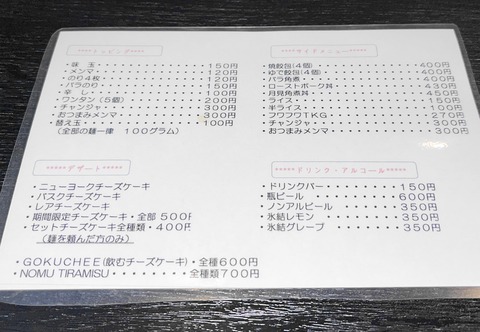 *****トッピング*****
・味 玉・・・・・・・・・・150円
・メンマ・・・・・・・・・120円
・のり4枚・・・・・・・・120円
・バラのり・・・・・・・・150円
・辛 し・・・・・・・・・100円
・ワンタン(5個)・・・・・200円
・チャンジャ・・・・・・・300円
・おつまみメンマ・・・・・300円
・替え玉・・・・・・・・・100円
(全部の麺一律 100グラム)
*****サイドメニュー*****
・焼餃包(4個)・・・・・・400円
・ゆで餃包(4個)・・・・・400円
・バラ角煮・・・・・・・・400円
・ローストポーク丼・・・・430円
・月見角煮丼・・・・・・・450円
・ライス・・・・・・・・・150円
・半ライス・・・・・・・・100円
・フワフワTKG・・・・・・270円
・チャンジャ・・・・・・・300円
・おつまみメンマ・・・・・300円
*****デザート*****
・ニューヨークチーズケーキ
・バスクチーズケーキ
・レアチーズケーキ
・期間限定チーズケーキ・全部 500円
・セットチーズケーキ全種類・400円
(麺を頼んだ方のみ)
・GOKUCHEE(飲むチーズケーキ)・全種600円
・NOMU TIRAMISU・・・・・・・・全種700円
*****ドリンク・アルコール*****
・ドリンクバー・・・・・150円
・瓶ビール・・・・・・・600円
・ノンアルビール・・・・350円
・氷結レモン・・・・・・350円
・氷結グレープ・・・・・350円